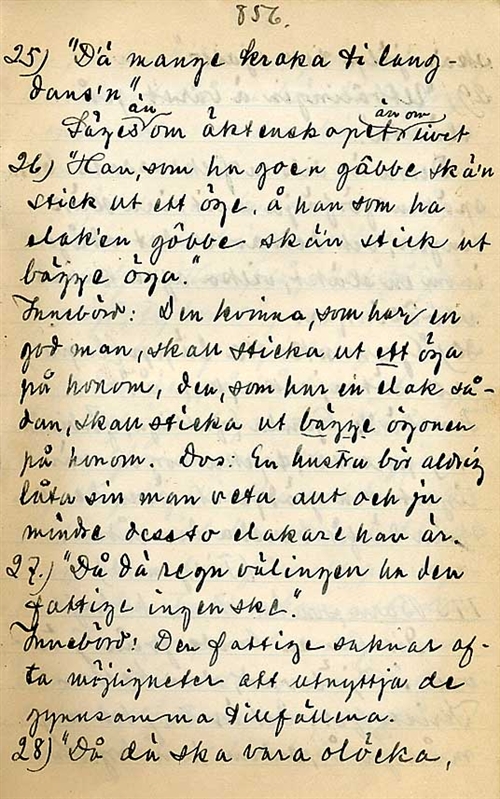 856.
25) "Dä mange kraka ti lang-
dans'n"
än än om
Säges om äktenskapet, livet
26) "Han, som ha goen gåbbe skä'n
stick ut ett öge, å han som ha
elak'en gôbbe skä'n stick ut
bägge öga."
Innebörd: Den kvinna, som har en
god man, skall sticka ut ett öga
på honom, den, som har en elak så-
dan, skall sticka ut bägge ögonen
på honom. Dvs: En hustru bör aldrig
låta sin man veta allt och ju
mindre dessto elakare han är.
27.) "Då dä regn välingen ha den
fattige ingen ske."
Innebörd: Den fattige saknar of-
ta möjligheter att utnyttja de
gynnsamma tillfällena.
28) "Då dä ska vara olöcka,